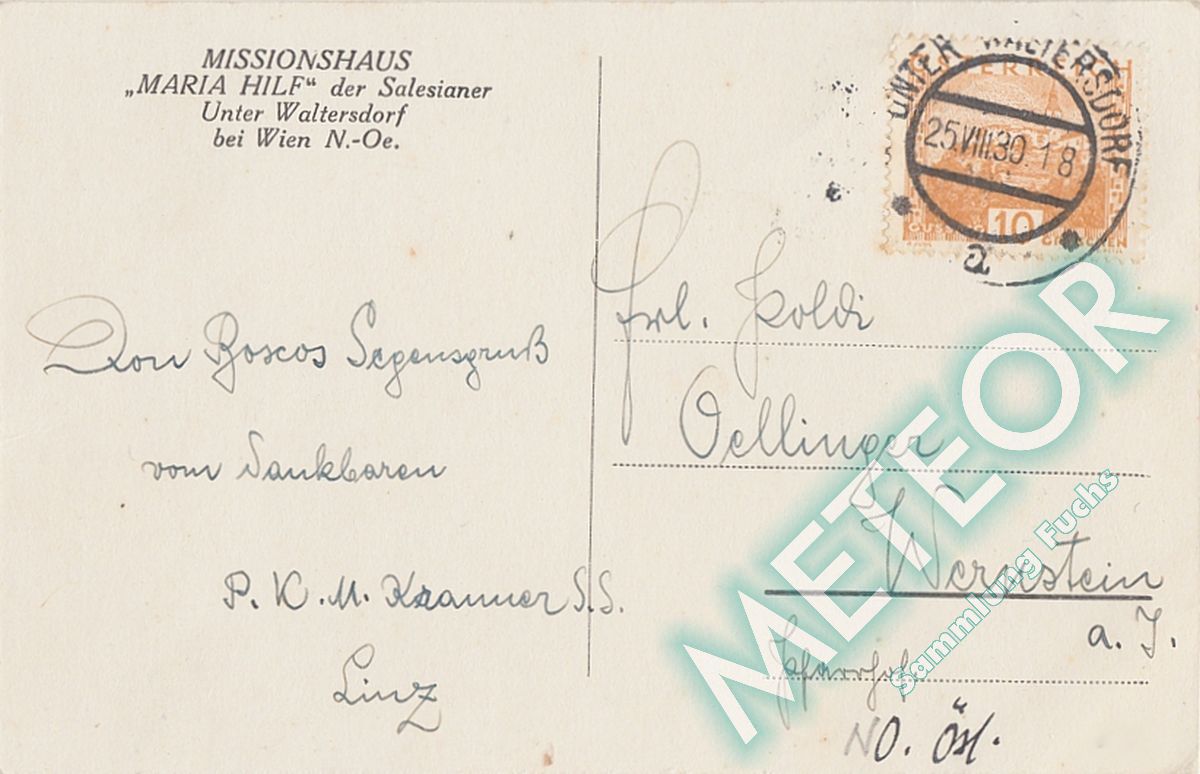 MISSIONSHAUS
„MARIA HILF“ der Salesianer
Unter Waltersdorf
bei Wien N.-Oe.
UNTER WALTERSDORF
25.VIII.30.18
a
10
GROSCHEN
Don Boscos Segensgruß
vom dankbaren
P. K. M. Kranner S.S.
Linz
Frl. Poldi
Oellinger
Wernstein
a. I.
Pfarrhof
NO. Öst.
METEOR
Sammlung Fuchs